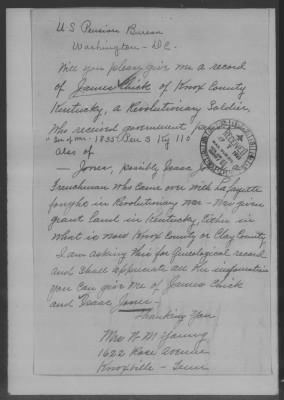 U.S. Pension Bureau
Washington - D.C.
Will you please give me a record
of James Chick of Knox County
Kentucky, a Revolutionary Soldier,
Who received government
1835 Pen 3 Ky 110
also of
— Jones, possibly Isaac, a
Frenchman who came over with Lafayette
fought in Revolutionary War - Was given
grant land in Kentucky, Either in
what is now Knox County or Clay County
I am asking this for Geneological record
and shall appreciate all the information
you can give me of James Chick
and Isaac Jones -
Thanking You
Mrs W. M. Young
1622 Rose Avenue
Knoxville - Tenn